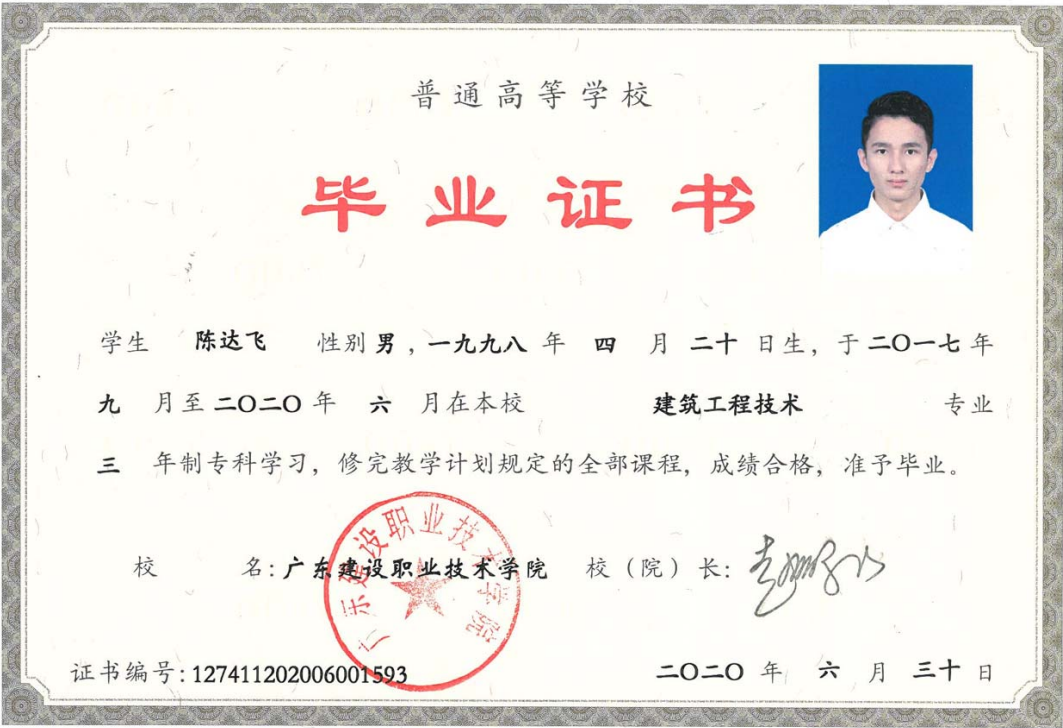 普通高等学校
毕业证书
学生 陈达飞 性别 男 , 一九九八 年 四 月 二十 日生, 于 二〇一七 年
九 月至 二〇二〇 年 六 月在本校 建筑工程技术 专业
三 年制专科学习, 修完教学计划规定的全部课程, 成绩合格, 准予毕业。
广东建设职业技术学院
校 名: 广东建设职业技术学院 校(院)长:
证书编号: 127411202006001593 二〇二〇 年 六 月 三十 日